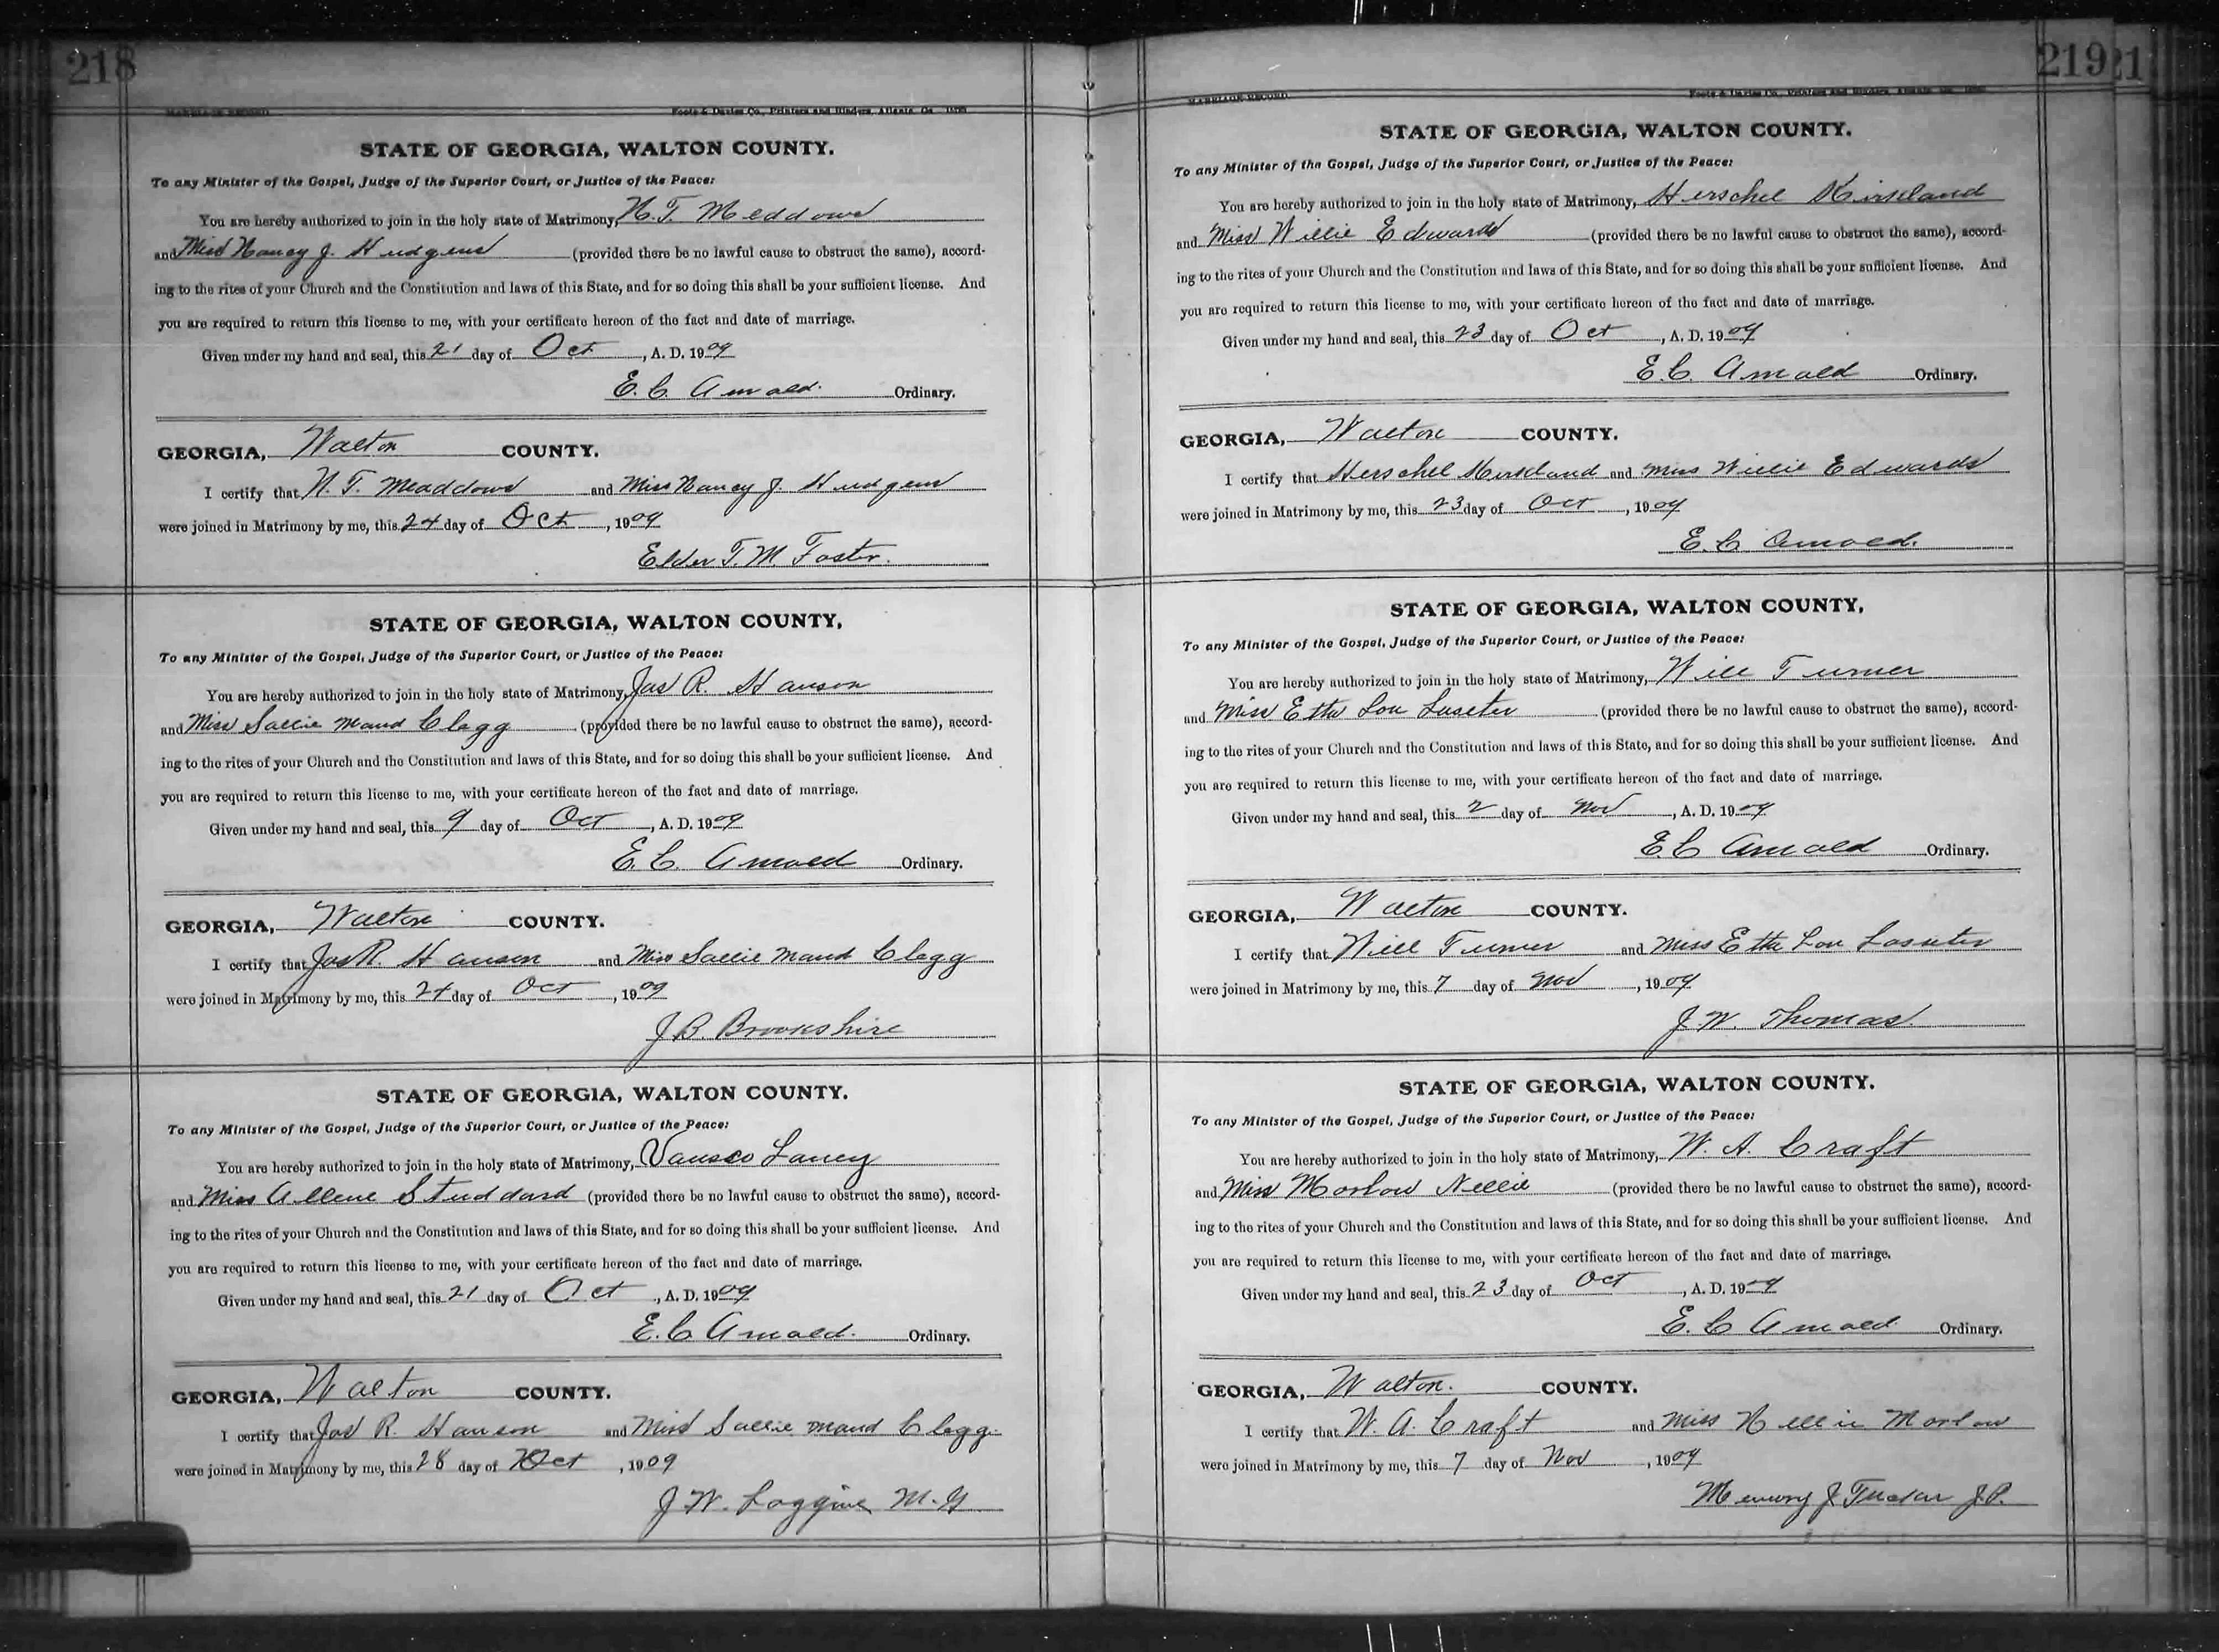 218
MARRIAGE RECORD Foote & Davies Co., Printers and Binders, Atlanta, Ga.
STATE OF GEORGIA, WALTON COUNTY.
To any Minister of the Gospel, Judge of the Superior Court, or Justice of the Peace:
You are hereby authorized to join in the holy state of Matrimony, N. T. Meddows
and Miss Nancy J. Hudgens (provided there be no lawful cause to obstruct the same), accord-
ing to the rites of your Church and the Constitution and laws of this State, and for so doing this shall be your sufficient license. And
you are required to return this license to me, with your certificate hereon of the fact and date of marriage.
Given under my hand and seal, this 21 day of Oct, A. D. 1909
E. C. Arnold. Ordinary.
GEORGIA, Walton COUNTY.
I certify that N. T. Meaddows and Miss Nancy J Hudgens
were joined in Matrimony by me, this 24 day of Oct, 1909
Elder T. M. Foster.
STATE OF GEORGIA, WALTON COUNTY,
To any Minister of the Gospel, Judge of the Superior Court, or Justice of the Peace:
You are hereby authorized to join in the holy state of Matrimony, Jas R. Hanson
and Miss Sallie Maud Clegg (provided there be no lawful cause to obstruct the same), accord-
ing to the rites of your Church and the Constitution and laws of this State, and for so doing this shall be your sufficient license. And
you are required to return this license to me, with your certificate hereon of the fact and date of marriage.
Given under my hand and seal, this 9 day of Oct, A. D. 1909
E. C. Arnold Ordinary.
GEORGIA, Walton COUNTY.
I certify that Jas R. Hanson and Miss Sallie Maud Clegg
were joined in Matrimony by me, this 24 day of Oct, 1909
J. B. Brookshire
STATE OF GEORGIA, WALTON COUNTY.
To any Minister of the Gospel, Judge of the Superior Court, or Justice of the Peace:
You are hereby authorized to join in the holy state of Matrimony, Lancy
and Miss Allene Studdard (provided there be no lawful cause to obstruct the same), accord-
ing to the rites of your Church and the Constitution and laws of this State, and for so doing this shall be your sufficient license. And
you are required to return this license to me, with your certificate hereon of the fact and date of marriage.
Given under my hand and seal, this 21 day of Oct, A. D. 1909
E. C Arnold. Ordinary.
GEORGIA, Walton COUNTY.
I certify that Jas R. Hanson and Miss Sallie Maud Clegg.
were joined in Matrimony by me, this 28 day of Oct, 1909
J. W. Loggins M. G
219 21
MARRIAGE RECORD Foote & Davies Co., Printers and Binders, Atlanta, Ga.
STATE OF GEORGIA, WALTON COUNTY.
To any Minister of the Gospel, Judge of the Superior Court, or Justice of the Peace:
You are hereby authorized to join in the holy state of Matrimony, Herschel Kirkland
and Miss Willie Edwards (provided there be no lawful cause to obstruct the same), accord-
ing to the rites of your Church and the Constitution and laws of this State, and for so doing this shall be your sufficient license. And
you are required to return this license to me, with your certificate hereon of the fact and date of marriage.
Given under my hand and seal, this 23 day of Oct, A. D. 1909
E. C. Arnold Ordinary.
GEORGIA, Walton COUNTY.
I certify that Herschel Kirkland and Miss Willie Edwards
were joined in Matrimony by me, this 23 day of Oct, 1909
E. C. Arnold.
STATE OF GEORGIA, WALTON COUNTY,
To any Minister of the Gospel, Judge of the Superior Court, or Justice of the Peace:
You are hereby authorized to join in the holy state of Matrimony, Will Turner
and Miss Etta Lou Luseter (provided there be no lawful cause to obstruct the same), accord-
ing to the rites of your Church and the Constitution and laws of this State, and for so doing this shall be your sufficient license. And
you are required to return this license to me, with your certificate hereon of the fact and date of marriage.
Given under my hand and seal, this 2 day of Nov, A. D. 1909
E. C Arnold Ordinary.
GEORGIA, Walton COUNTY.
I certify that Will Turner and Miss Etta Lou Lasseter
were joined in Matrimony by me, this 7 day of Nov, 1909
J. W. Thomas.
STATE OF GEORGIA, WALTON COUNTY.
To any Minister of the Gospel, Judge of the Superior Court, or Justice of the Peace:
You are hereby authorized to join in the holy state of Matrimony, W. A. Craft
and Miss Morlow Nellie (provided there be no lawful cause to obstruct the same), accord-
ing to the rites of your Church and the Constitution and laws of this State, and for so doing this shall be your sufficient license. And
you are required to return this license to me, with your certificate hereon of the fact and date of marriage.
Given under my hand and seal, this 23 day of Oct, A. D. 1909
E. C Arnold Ordinary.
GEORGIA, Walton. COUNTY.
I certify that W. A. Craft and Miss Nellie Morlow
were joined in Matrimony by me, this 7 day of Nov, 1909
Memory J Tucker J. P.